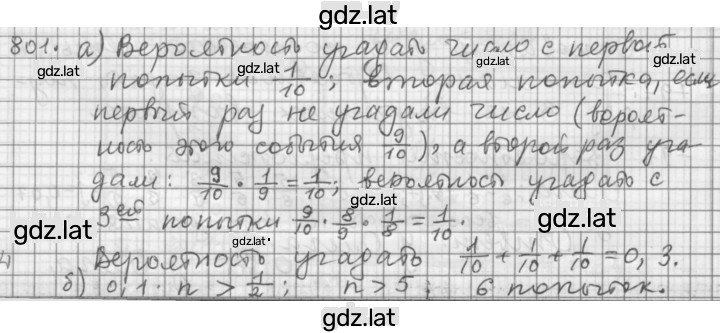 gdz.lat
801. а) Вероятность угадать число с первой
gdz.lat gdz.lat gdz.lat
попытки 1/10; вторая попытка, если
первый раз не угадали число (вероят-
ность этого события 9/10), а второй раз уга-
gdz.lat gdz.lat
дали: 9/10 · 1/9 = 1/10; вероятность угадать с
3ей попытки 9/10 · 8/9 · 1/8 = 1/10.
gdz.lat gdz.lat gdz.lat
Вероятность угадать 1/10 + 1/10 + 1/10 = 0,3.
б) 0,1 · n > 1/2; n > 5; 6 попыток.
gdz.lat